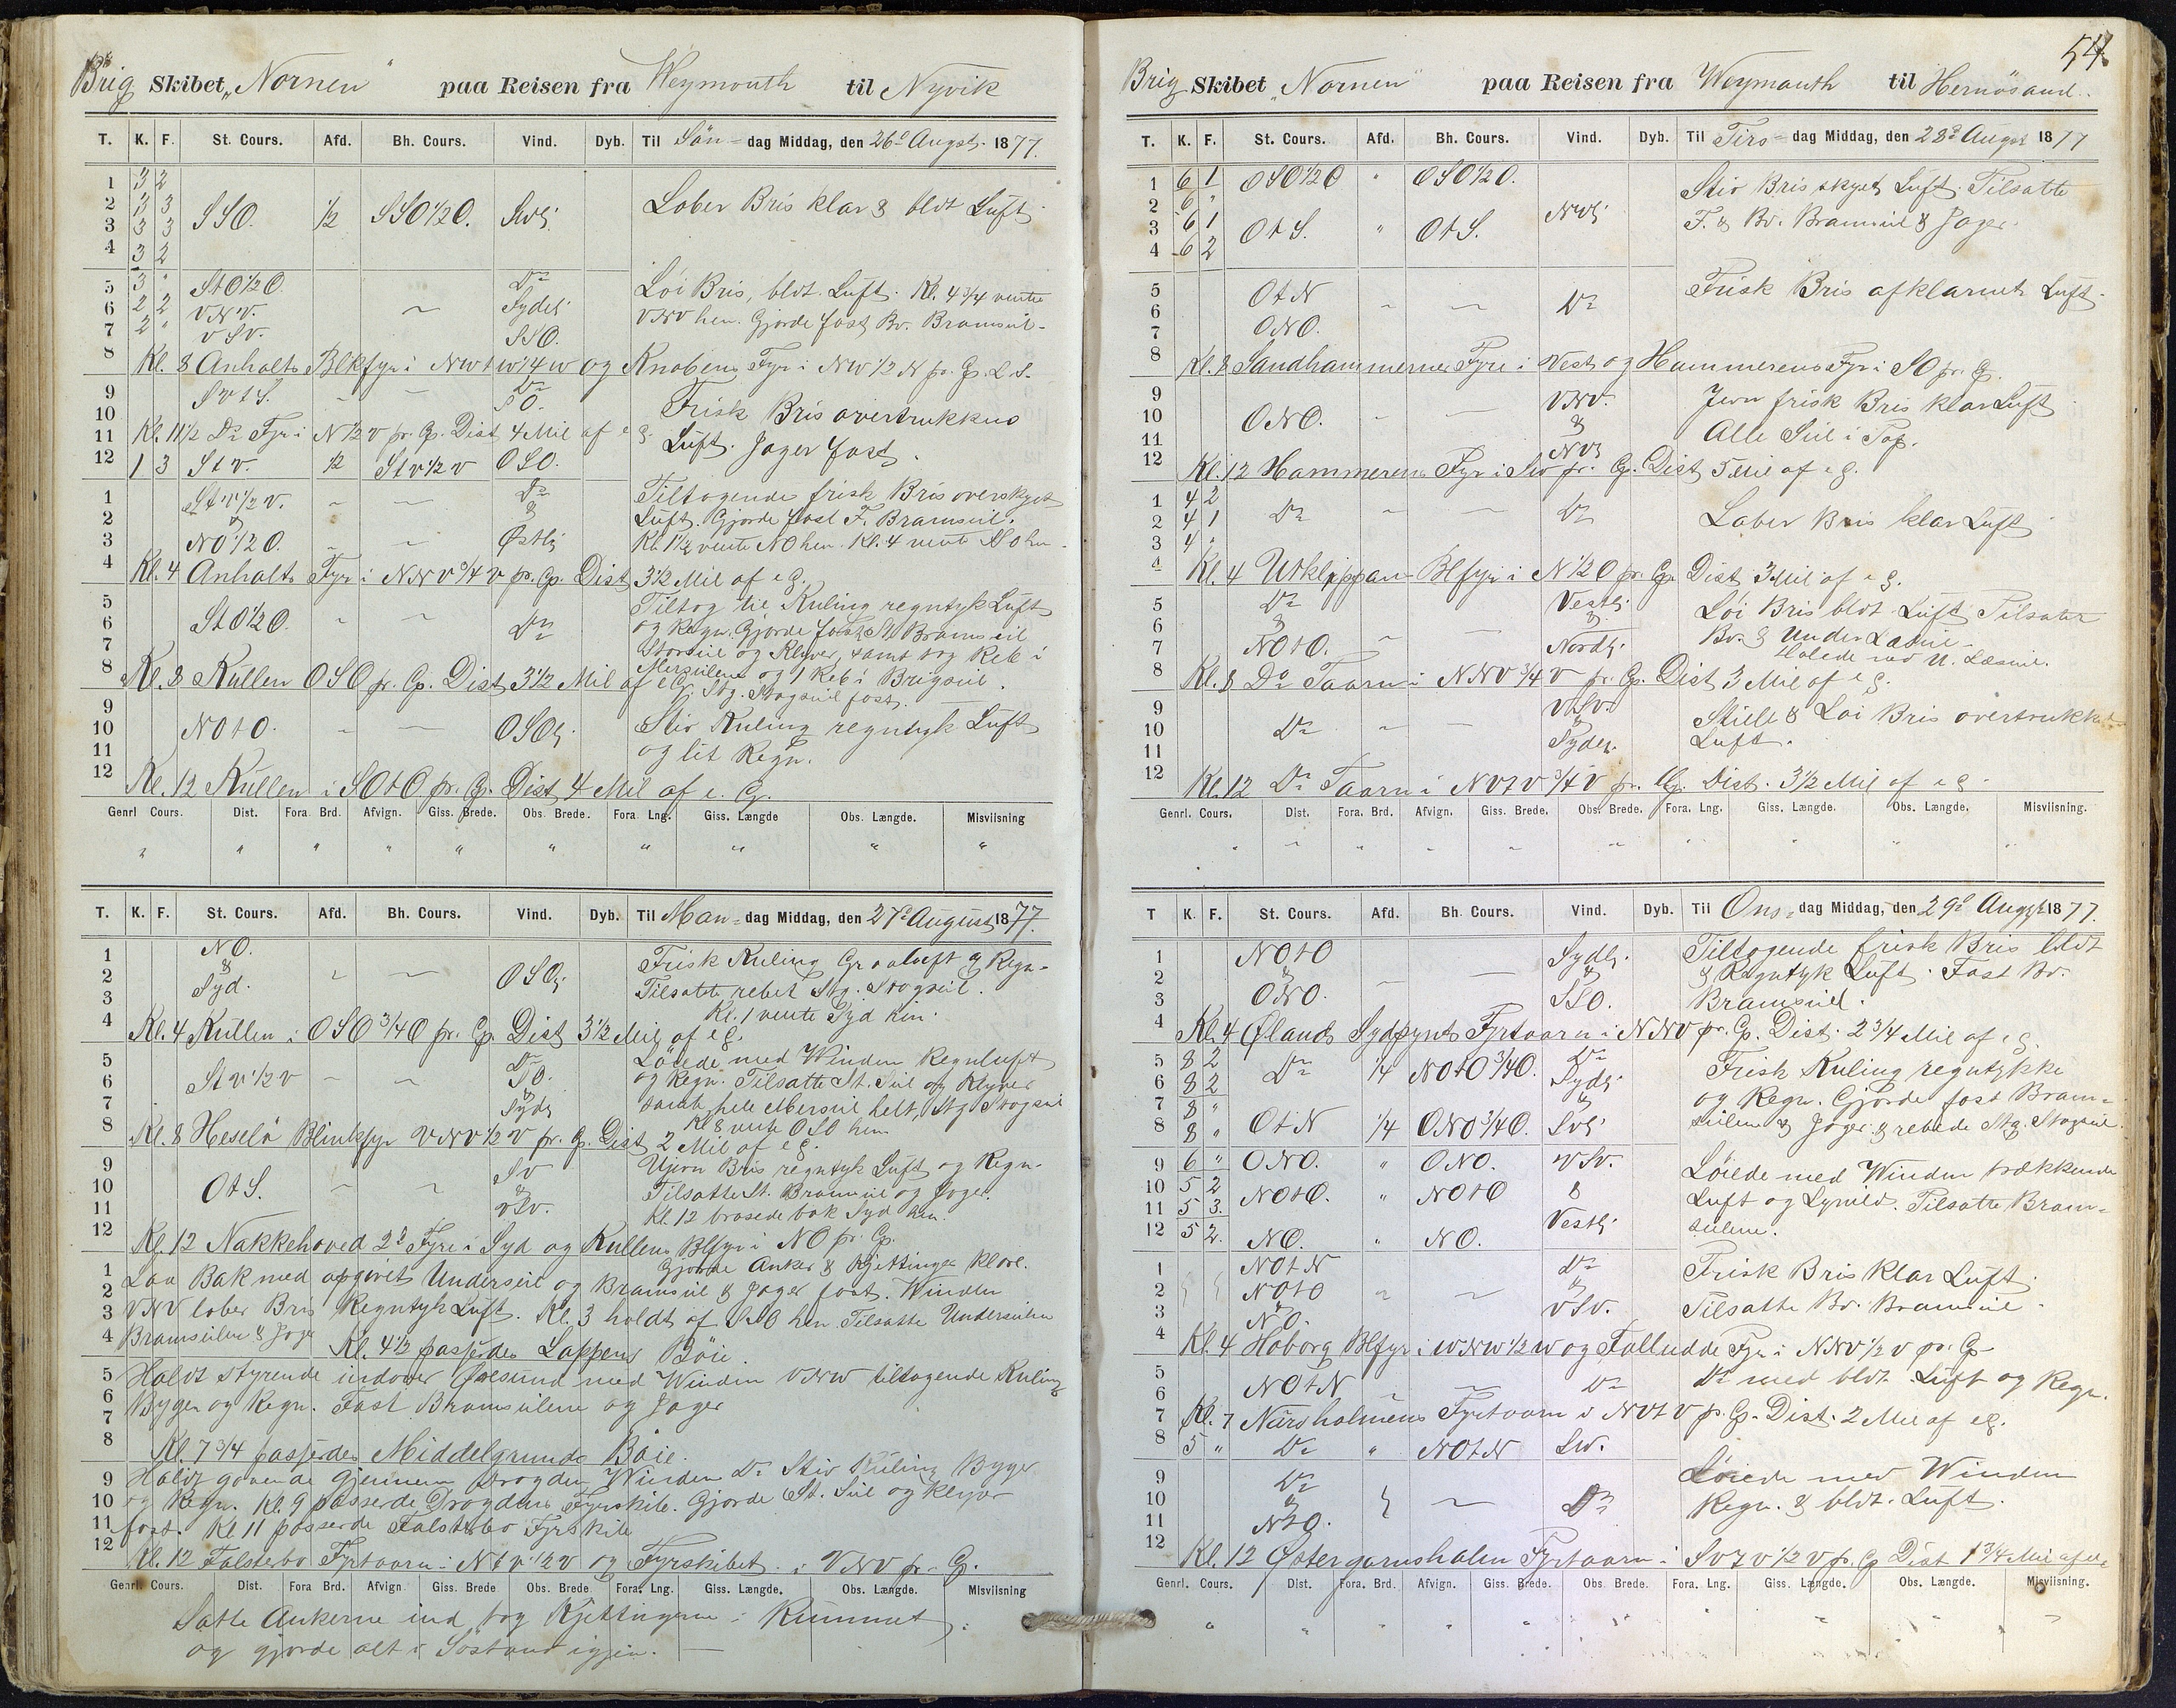 Brig Skibet „Nornen" paa Reisen fra Weymouth til Nyvik
T. K. F. St. Cours. Afd. Bh. Cours. Vind. Dyb. Til Søn- dag Middag, den 26d Augst. 1877.
1 3 2
2 3 3 SSO. 1/2 SSO1/2O. Laber Bris klar & bldt Luft
3 3 3
4 3 2
5 3 " StO1/2O. Do Løi Bris, bldt. Luft. Kl. 4 3/4 vente
6 2 2 VNV. Sydlg VNV hen. Gjorde fast Bv. Bramseil-
7 2 " VSV. SSO.
8 Kl. 8 Anholts Blkfyr i NWtW1/4W og Knobens Fyr i NW1/2N pr. Cp.
9 SVtS. Do Frisk Bris overtrukken
10 SO. Luft. Jager fast.
11 Kl. 11 1/2 Do Fyr i N1/2V pr. Cp. Dist 4 Mil af
12 1 3 StV. 1/2 StV1/2V OSO.
1 StV1/2V. Do Tiltagende frisk Bris overskyet
2 & & Luft. Gjorde fast F. Bramseil.
3 NO1/2O. Østlg Kl. 1 1/2 vente NO hen. Kl. 4 vente
4 Kl. 4 Anholts Fyr i NNV3/4V pr. Cp. Dist 3 1/2 Mil af eg.
5 Tiltog til Kuling regntyk Luft
6 StO1/2O. Do og Regn. Gjorde fast St. Bramseil
7 Storseil og Klyver, samt tog Reb i
8 Kl. 8 Kullen OSO pr. Cp. Dist 3 1/2 Mil af eg. Mersseilene og 1 Reb i Brigseil.
Stg. Stagseil fast.
9
10 NOtO. OSOlg. Stiv Kuling regntyk Luft
11 og lit Regn.
12 Kl. 12 Kullen i SOtO pr. Cp. Dist 4 Mil af e. G.
Genrl Cours. Dist. Fora. Brd. Afvign. Giss. Brede. Obs. Brede. Fora. Lng. Giss. Længde Obs. Længde. Misviisning
" " " " " " " " " "
T. K. F. St. Cours. Afd. Bh. Cours. Vind. Dyb. Til Man- dag Middag, den 27d August 1877.
1 NO. Frisk Kuling Graaluft & Regn.
2 & OSOlg Tilsatte rebet Stg. Stagseil.
3 Syd. Kl. 1 vente Syd hen.
4 Kl. 4 Kullen i OSO3/4O pr. Cp. Dist 3 1/2 Mil af eg.
5 Do Løiede med Winden Regnluft
6 StV1/2V SO. og Regn. Tilsatte St. Seil og Klyver
7 & Sydlg samt hele Mersseil helt, Stg Stagseil
8 Kl. 8 Heselø Blinkfyr VNV1/2V pr. Cp. Dist 2 Mil af eg. Kl 8 vente OSO hen
9 SV Ujevn Bris regntyk Luft og Regn.
10 OtS. & Tilsatte St. Bramseil og Jager.
11 VSV. Kl. 12 brasede bak Syd hen.
12 Kl. 12 Nakkehoved 2de Fyre i Syd og Kullens Blfyr i NO pr. Cp.
Gjorde Anker & Kjettinger klare.
1 Laa Bak med opgivet Underseil og Bramseil & Jager fast. Winden
2 VNV laber Bris Regntyk Luft. Kl. 3 holdt af SSO hen. Tilsatte Underseilen
3 Bramseilene & Jager
4 Kl. 4 1/2 passerdes Lappens Bøie.
5 Holdt styrende indover Øresund med Winden VNW tiltagende Kuling
6 Byger og Regn. Fast Bramseilene og Jager
7
8 Kl. 7 3/4 passerdes Middelgrunds Bøie.
9 Holdt gaaende gjennem Drogden Winden Do Stiv Kuling Byger
10 og Regn. Kl. 9 passerde Drogdens Fyrskib. Gjorde St. Seil og Klyver
11 fast. Kl 11 passerde Falsterbo Fyrskib
12 Kl. 12 Falsterbo Fyrtaarn i NtV1/2V og Fyrskibet i VNV pr. Cp.
Genrl. Cours. Dist. Fora Brd. Afvign Giss. Brede Obs. Brede. Fora. Lng. Giss. Længde. Obs. Længde. Misviisning
Satte Ankerne ind tog Kjettingerne i Rummet
og gjorde alt i Søstand igjen.
54.
Brig Skibet „Nornen" paa Reisen fra Weymouth til Hernøsand.
T. K. F. St. Cours. Afd. Bh. Cours. Vind. Dyb. Til Tirs- dag Middag, den 28d Augst 1877
1 6 1 OSO1/2O " OSO1/2O. Stiv Bris skyet Luft. Tilsatte
2 6 " NVlg F. & Bv. Bramseil & Jager.
3 6 1 OtS. " OtS.
4 6 2
5 OtN Do Frisk Bris afklarnet Luft.
6
7 ONO.
8 Kl. 8 Sandhammernes Fyre i Vest og Hammerens Fyr i SO pr. Cp.
9 VNV. Jevn frisk Bris klar Luft
10 ONO. & Alle Seil i Top.
11 NVlg
12 Kl. 12 Hammerens Fyr i SW pr. Cp. Dist 5 Mil af eg.
1 4 2
2 4 1 Do Do Laber Bris klar Luft
3 4 "
4 Kl. 4 Utklippan Blfyr i N1/2O pr. Cp. Dist 3 Mil af eg.
5 Do Vestlg. Løi Bris bldt. Luft Tilsatte
6 & & Bv. & Under Læseil.
7 NOtO. Nordlg. Halede ned U. Læseil.
8 Kl. 8 Do Taarn i NNV3/4V pr. Cp. Dist 3 Mil af eg.
9 VSV. Stille & Løi Bris overtrukket
10 Do & Luft.
11 Sydlg.
12 Kl. 12 Do Taarn i NVtV3/4V pr. Cp. Dist. 3 1/2 Mil af eg
Genrl. Cours. Dist. Fora. Brd. Afvign. Giss. Brede. Obs. Brede. Fora. Lng. Giss. Længde. Obs. Længde. Misviisning.
" " " " " " " " " "
T K. F. St. Cours. Afd. Bh. Cours. Vind. Dyb. Til Ons- dag Middag, den 29d Augst 1877.
1 NOtO Sydlg. Tiltagende frisk Bris bldt
2 & & & Regntyk Luft. Fast Bv.
3 ONO. SSO. Bramseil.
4 Kl. 4 Ølands Sydpynt Fyrtaarn i NNV pr. Cp. Dist. 2 3/4 Mil af eg.
5 8 2 Do 1/4 NOtO3/4O. Do Frisk Kuling regntykke
6 8 2 Sydlg og Regn. Gjorde fast Bram-
7 8 " & seilene & Jager & rebede Stg. Stagseil.
8 8 " OtN 1/4 ONO3/4O. SVlg
9 6 " ONO. " ONO. VSV. Løiede med Winden trækkende
10 5 2 NOtO. " NOtO & Luft og Lynild. Tilsatte Bram-
11 5 3. Vestlg seilene.
12 5 2. NO. " NO.
1 NOtN Do Frisk Bris Klar Luft.
2 NOtO & Tilsatte Bv. Bramseil.
3 NO. VSV.
4 Kl. 4 Hoborg Blfyr i WNW1/2W og Falludde Fyr i NNV1/2V pr. Cp
5 NOtN Do Do med bldt. Luft og Regn.
6
7 Kl. 7 Närsholmens Fyrtaarn i NVtV pr. Cp. Dist. 2 Mil af eg.
8 5 " Do " NOtN SW.
9 Do Løiede med Winden
10 & Do Regn. & bldt. Luft.
11 NtO.
12 Kl. 12 Østergarnsholm Fyrtaarn i SVtV1/2V pr. Cp Dist 1 3/4 Mil af eg
Genrl. Cours. Dist. Fora. Brd. Afvign. Giss. Brede. Obs. Brede. Fora. Lng. Giss. Længde. Obs. Længde. Misviisning.
" " " " " " " " " "